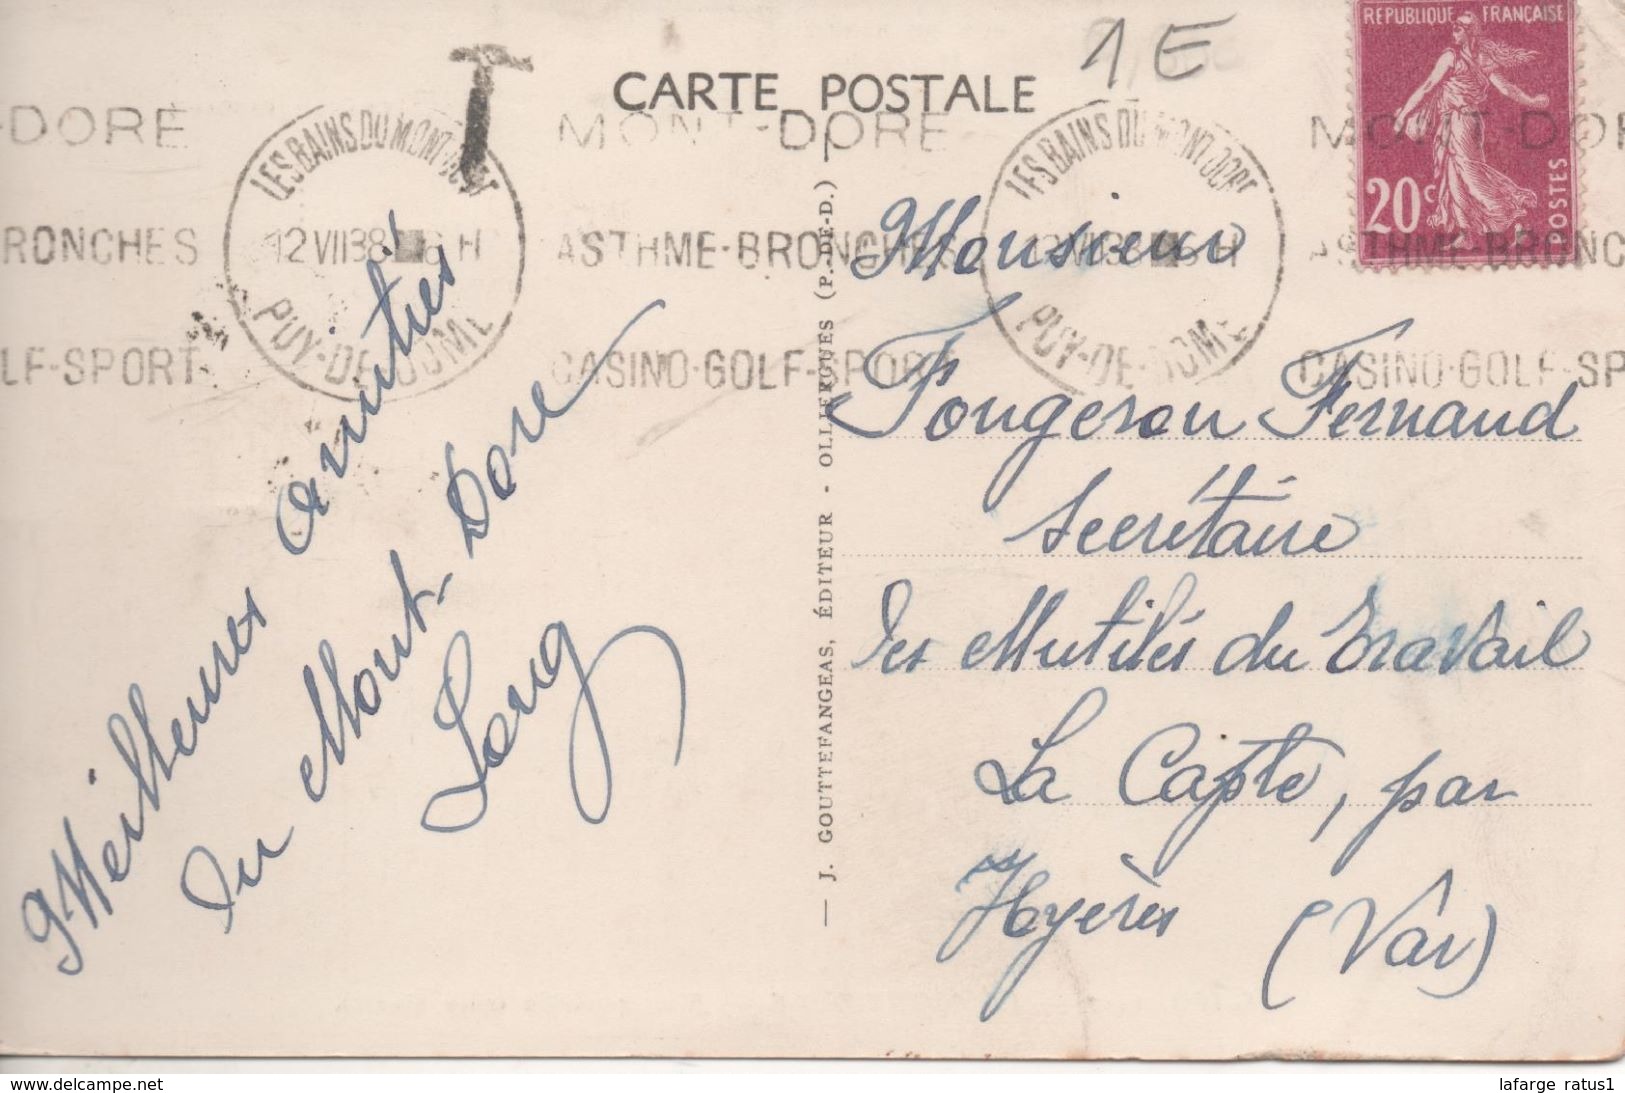 1E
CARTE POSTALE
RÉPUBLIQUE FRANÇAISE
20c
POSTES
T
-DORE
RONCHES
LF-SPORT
LES BAINS DU MONT-DORE
12 VII 38
PUY-DE-DOME
MONT-DORE
ASTHME-BRONCHES
CASINO-GOLF-SPORT
LES BAINS DU MONT-DORE
PUY-DE-DOME
MONT-DORE
ASTHME-BRONC
CASINO-GOLF-SP
Meilleures amitiés
du Mont-Dore
— J. GOUTTEFANGEAS, ÉDITEUR - OLLIERGUES (P.-DE-D.)
Monsieur
Fougerou Fernand
Secrétaire
des Mutilés du Travail
La Capte, par
Hyères
(Var)
www.delcampe.net
lafarge ratus1